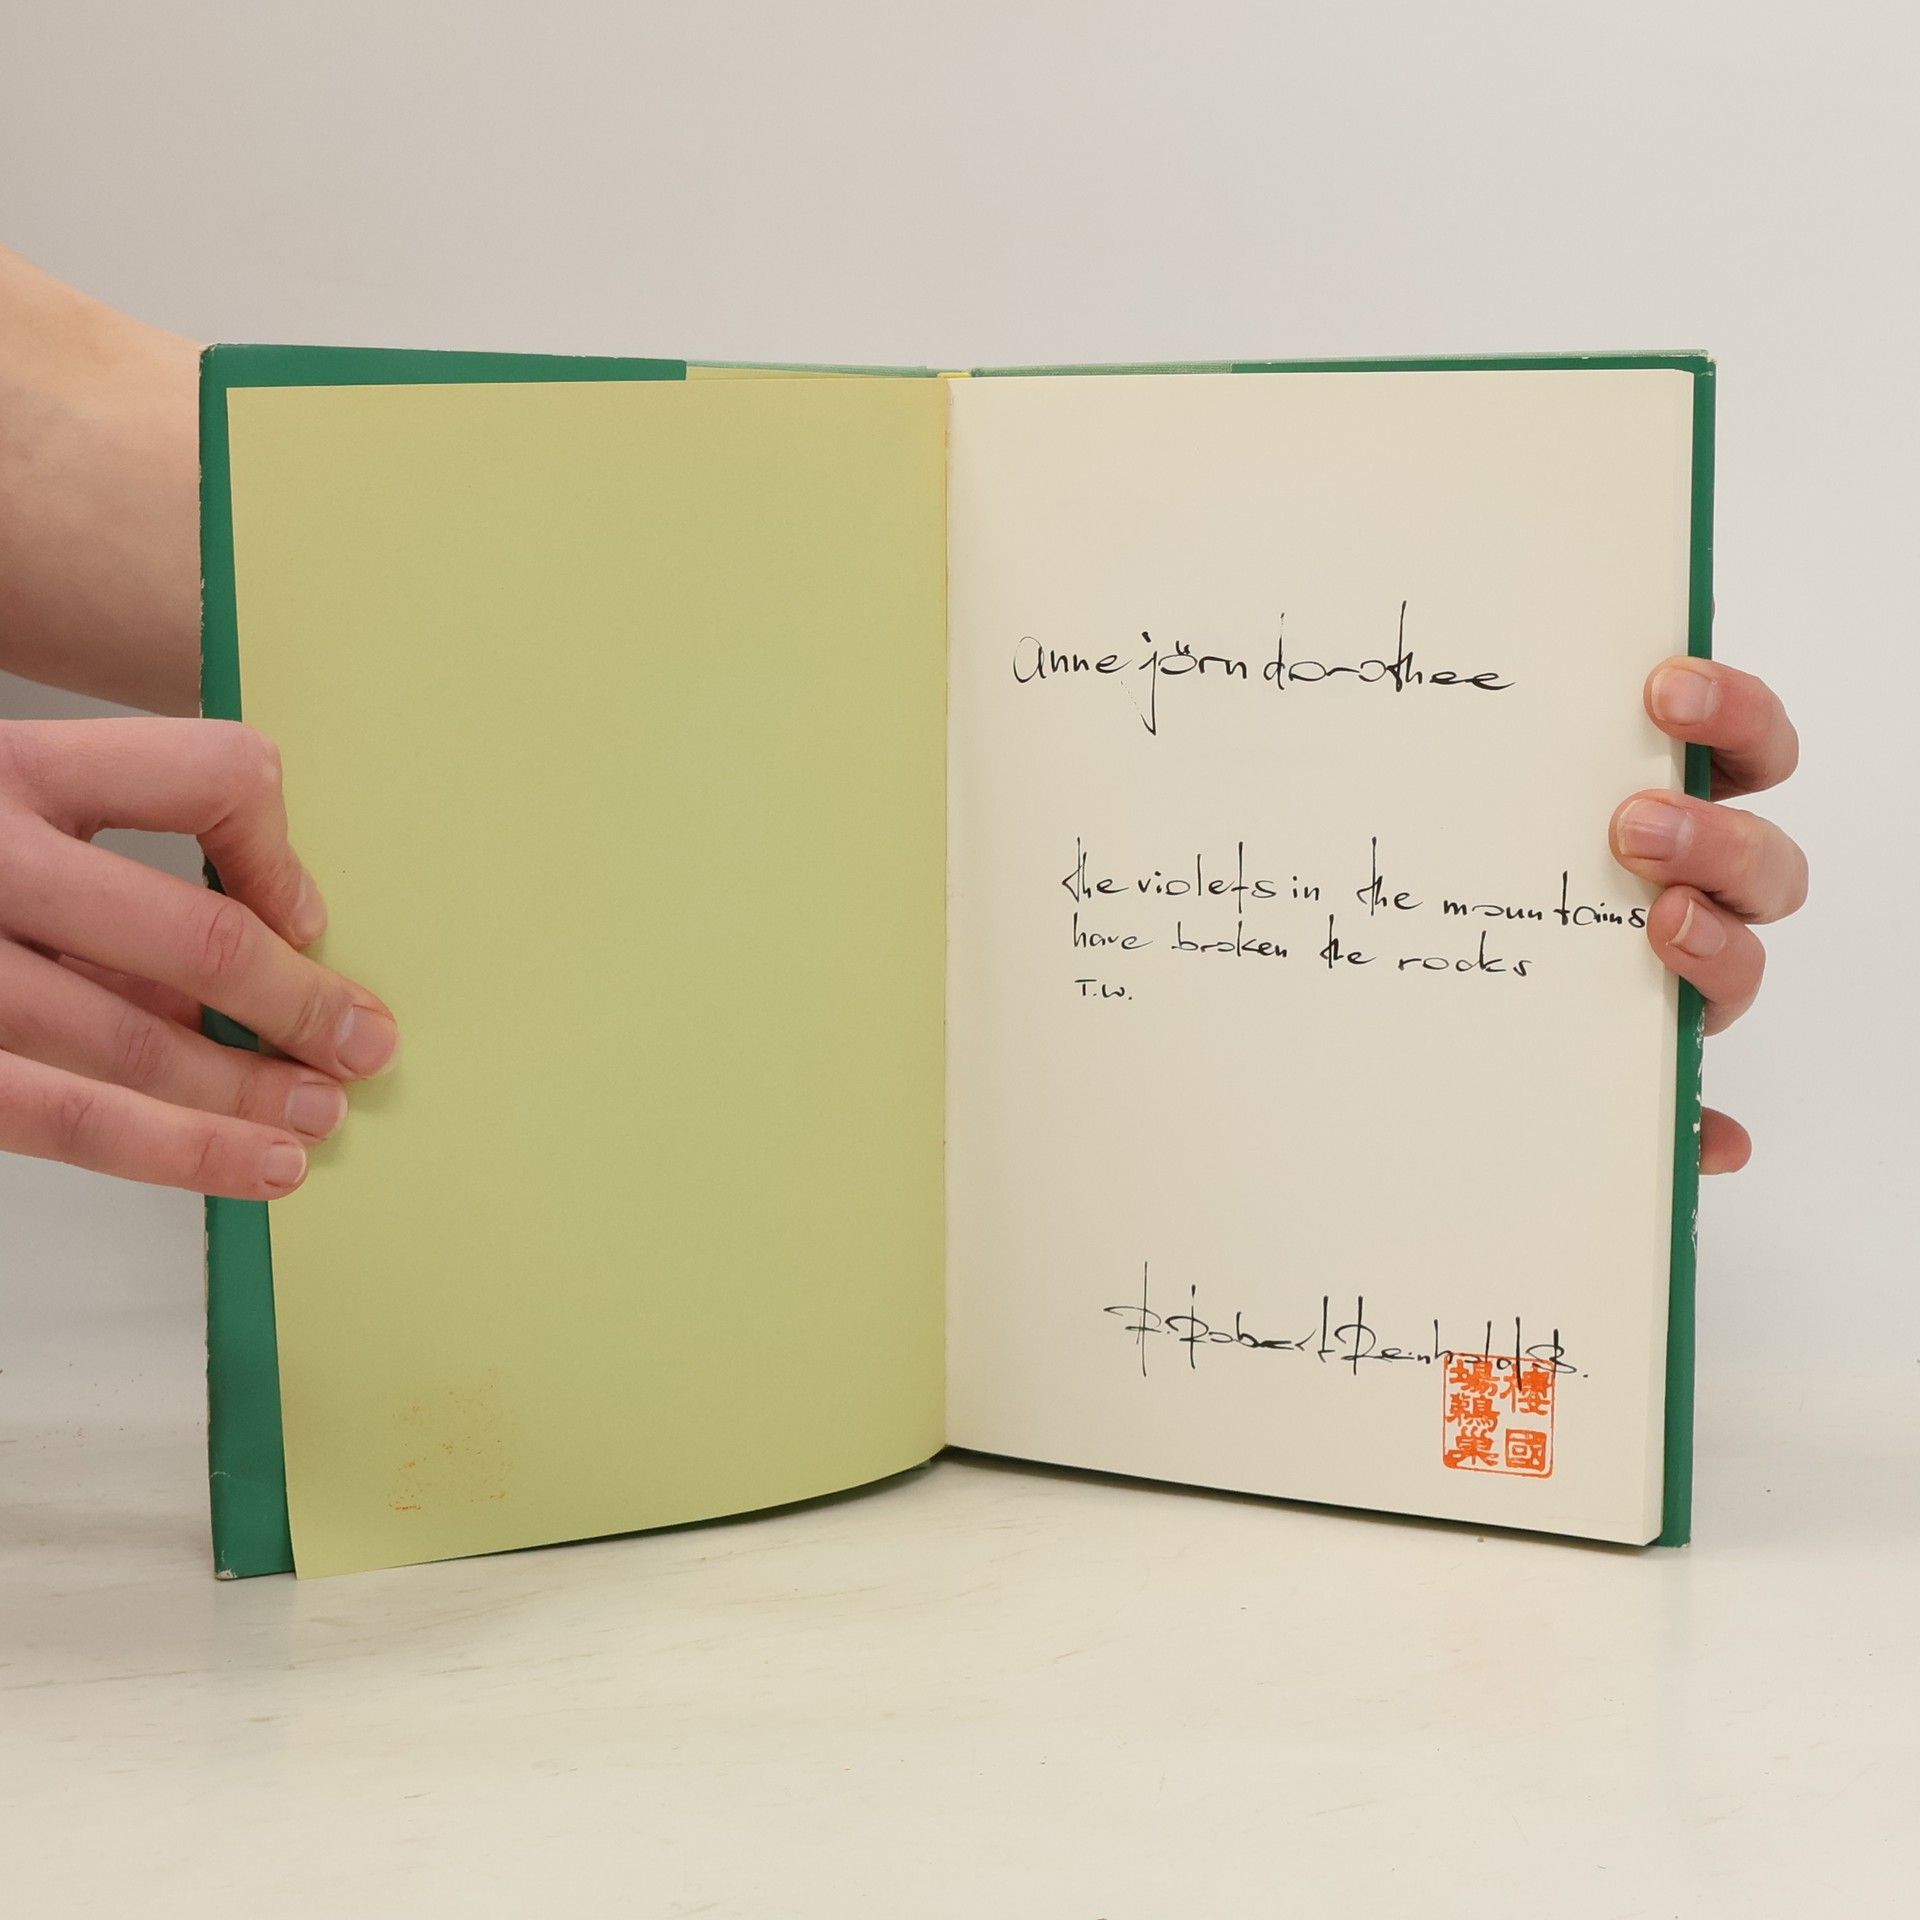 anne jörn dorothee
the violets in the mountains
have broken the rocks
T.W.
R. Robert Reinhold B.
樓國
場鶏巢